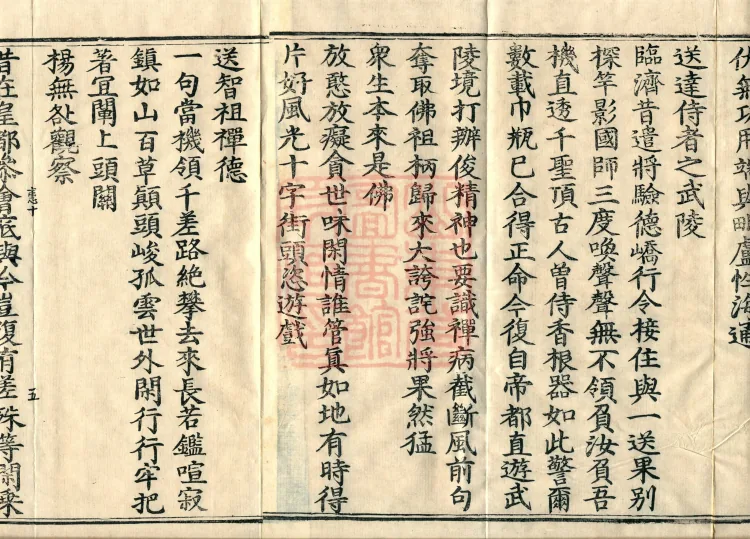 伏無功用端與毗盧性海通
送達侍者之武陵
臨濟昔遣將驗德嶠行令接住與一送果別
探竿影國師三度喚聲聲無不領負汝負吾
機直透千聖頂古人曾侍香根器如此警爾
數載巾瓶已合得正命今復自帝都直遊武
陵境打辦俊精神也要識禪病截斷風前句
奪取佛祖柄歸來大誇詫強將果然猛
衆生本來是佛
放憨放癡貪世味閑情誰管眞如地有時得
片好風光十字街頭恣遊戲
送智祖禪德
一句當機領千差路絶攀去來長若鑑喧寂
鎮如山百草顛頭峻孤雲世外閑行行牢把
著宜闡上頭關
楊無咎觀察
昔在皇都參會底與今豈復有差殊等閑乘
五